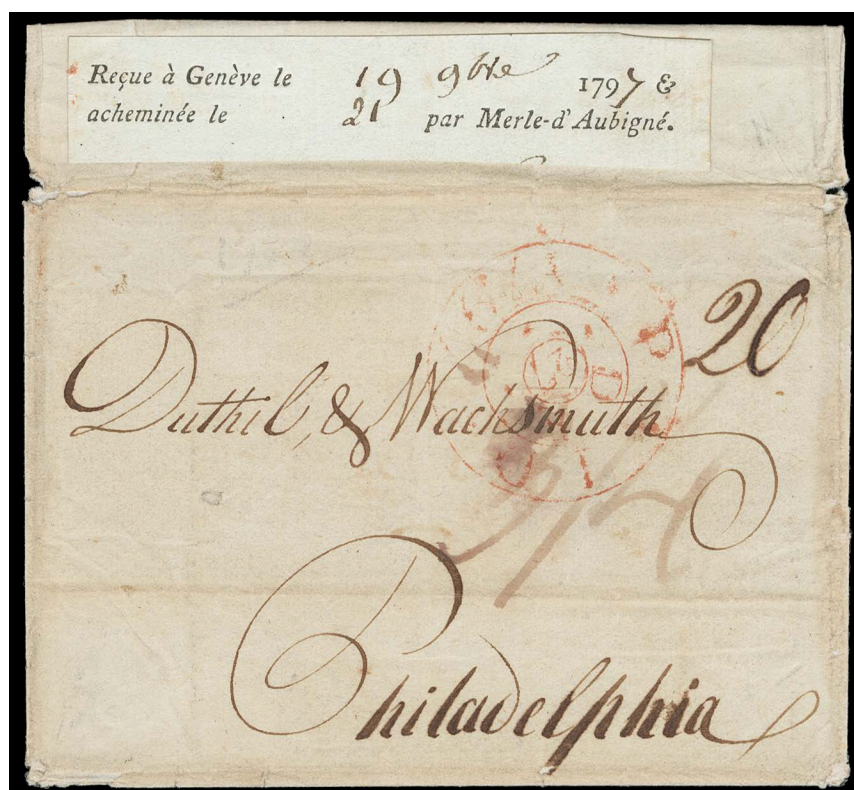 Reçue à Genève le 19 9bre 1797 &
acheminée le 21 par Merle-d'Aubigné.
20
Duthil, & Wachsmuth
3/4
Philadelphia